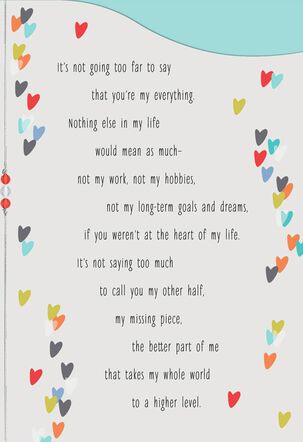 It's not going too far to say
that you're my everything.
Nothing else in my life
would mean as much–
not my work, not my hobbies,
not my long-term goals and dreams,
if you weren't at the heart of my life.
It's not saying too much
to call you my other half,
my missing piece,
the better part of me
that takes my whole world
to a higher level.